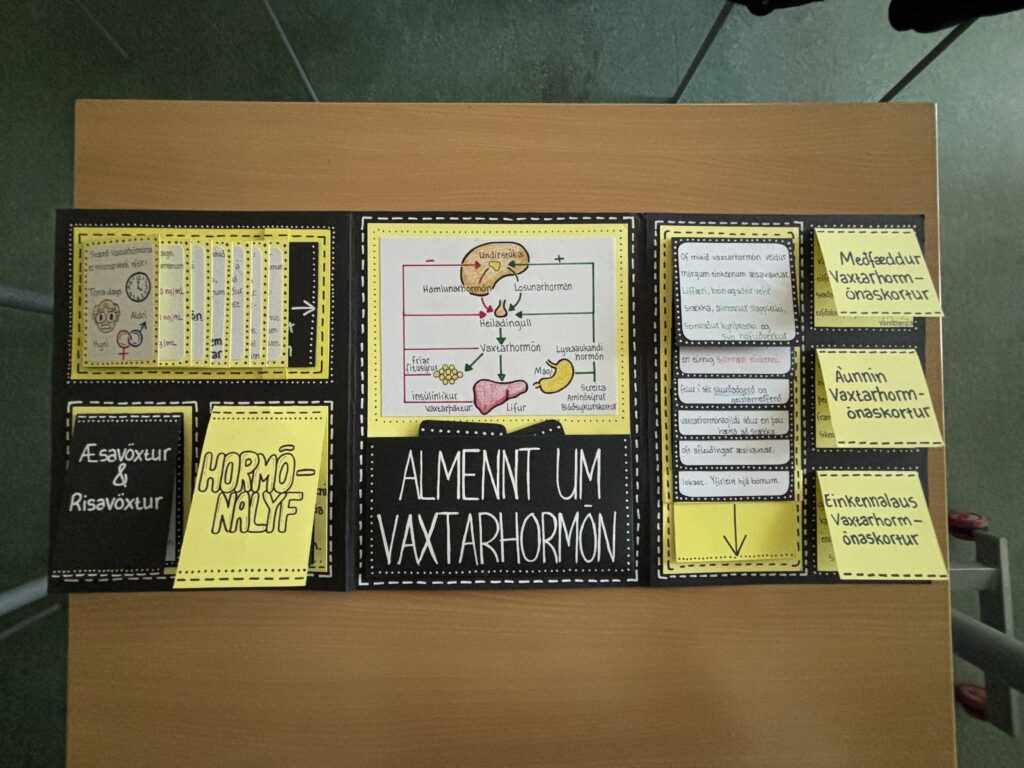 Styrkur vaxtarhormóna
er mismunandi eftir:
Tíma dags
Aldri
Kyni
Æsavöxtur
&
Risavöxtur
HORMÓ-
NALYF
Undirstúka
Hamlunarhormón
Losunarhormón
Heiladingull
Vaxtarhormón
fríar
fitusýrur
Insúlínlíkur
vaxtarþáttur
Lifur
Magi
Lystaaukandi
hormón
Streita
Amínósýrur
Blóðsykurskortur
ALMENNT UM
VAXTARHORMÓN
Of mikið vaxtarhormón veldur
mörgum einkennum æsavaxtar.
Líffæri, bein og aðrir vefir
stækka, almennur slappleiki,
seinkaður kynþroski og
en einnig sjóntaen einkenni.
felur í sér skurðaðgerð og
geislameðferð
vaxtarhormónagildi áður en þau
hætta að stækka
oft afleiðingar æsivaxtar.
lokast. Yfirleitt hjá börnum.
Meðfæddur
Vaxtarhorm-
ónaskortur
Áunnin
Vaxtarhorm-
ónaskortur
Einkennalaus
Vaxtarhorm-
ónaskortur